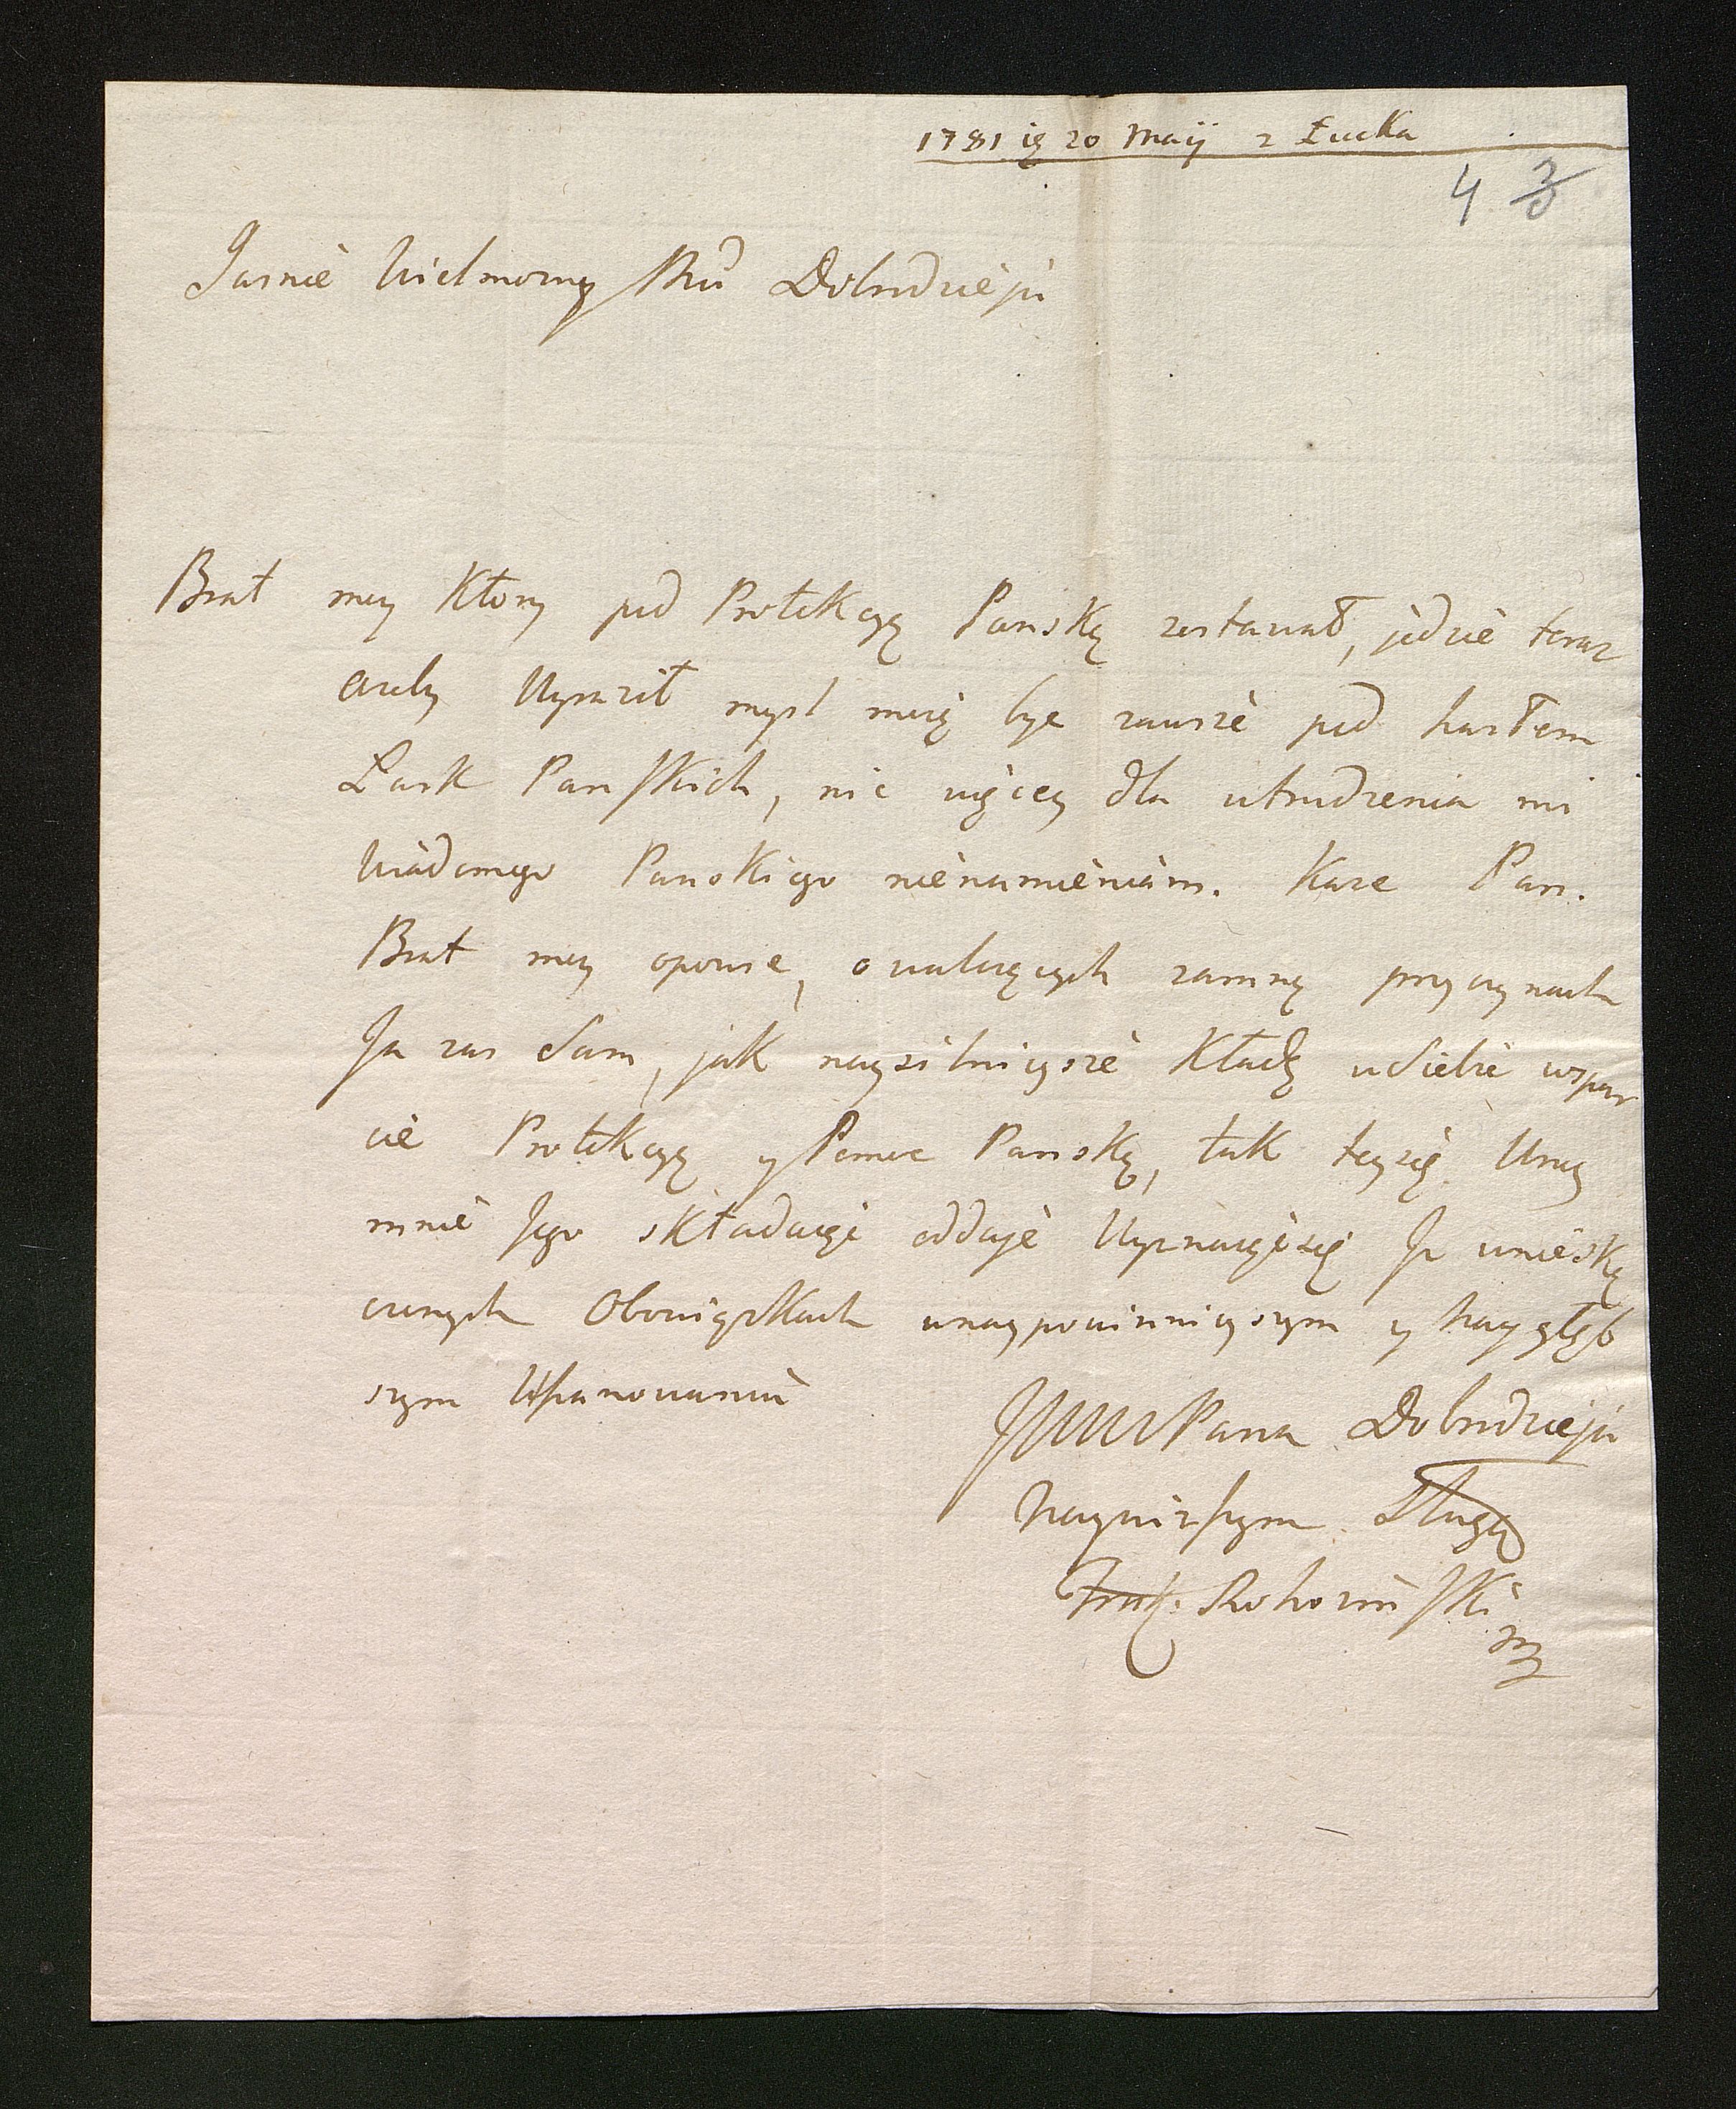 1781 ię 20 Maij z Łucka
4 3
Jasnie Wielmozny Mci Dobrodzieju
Brat moy Ktory pod Protekcyą Panską zostawał, jedzie teraz
azeby Wyraził mysl moię byc zawsze pod hasłem
Lask Panskich, nic więcey dla utrudzenia mi
Wiadomego Panskiego nienamieniam. Kaze Pan.
Brat moy opowie, o walczących zamną przyczynach
Ja zas Sam, jak naysilnieysze Kładę u Siebie wspar
cie Protekcyą y Pomoc Panską, tak teyze Uray
mnie Jego składaiąc oddaje Wyznaiącsię Ja w niesko
czonych Obowiązkach w naypowinnieyszym y naygłęb
szym Uszanowaniu
JWW Pana Dobrodzieja
Nayniszym Sługą
Rohozinski
mp